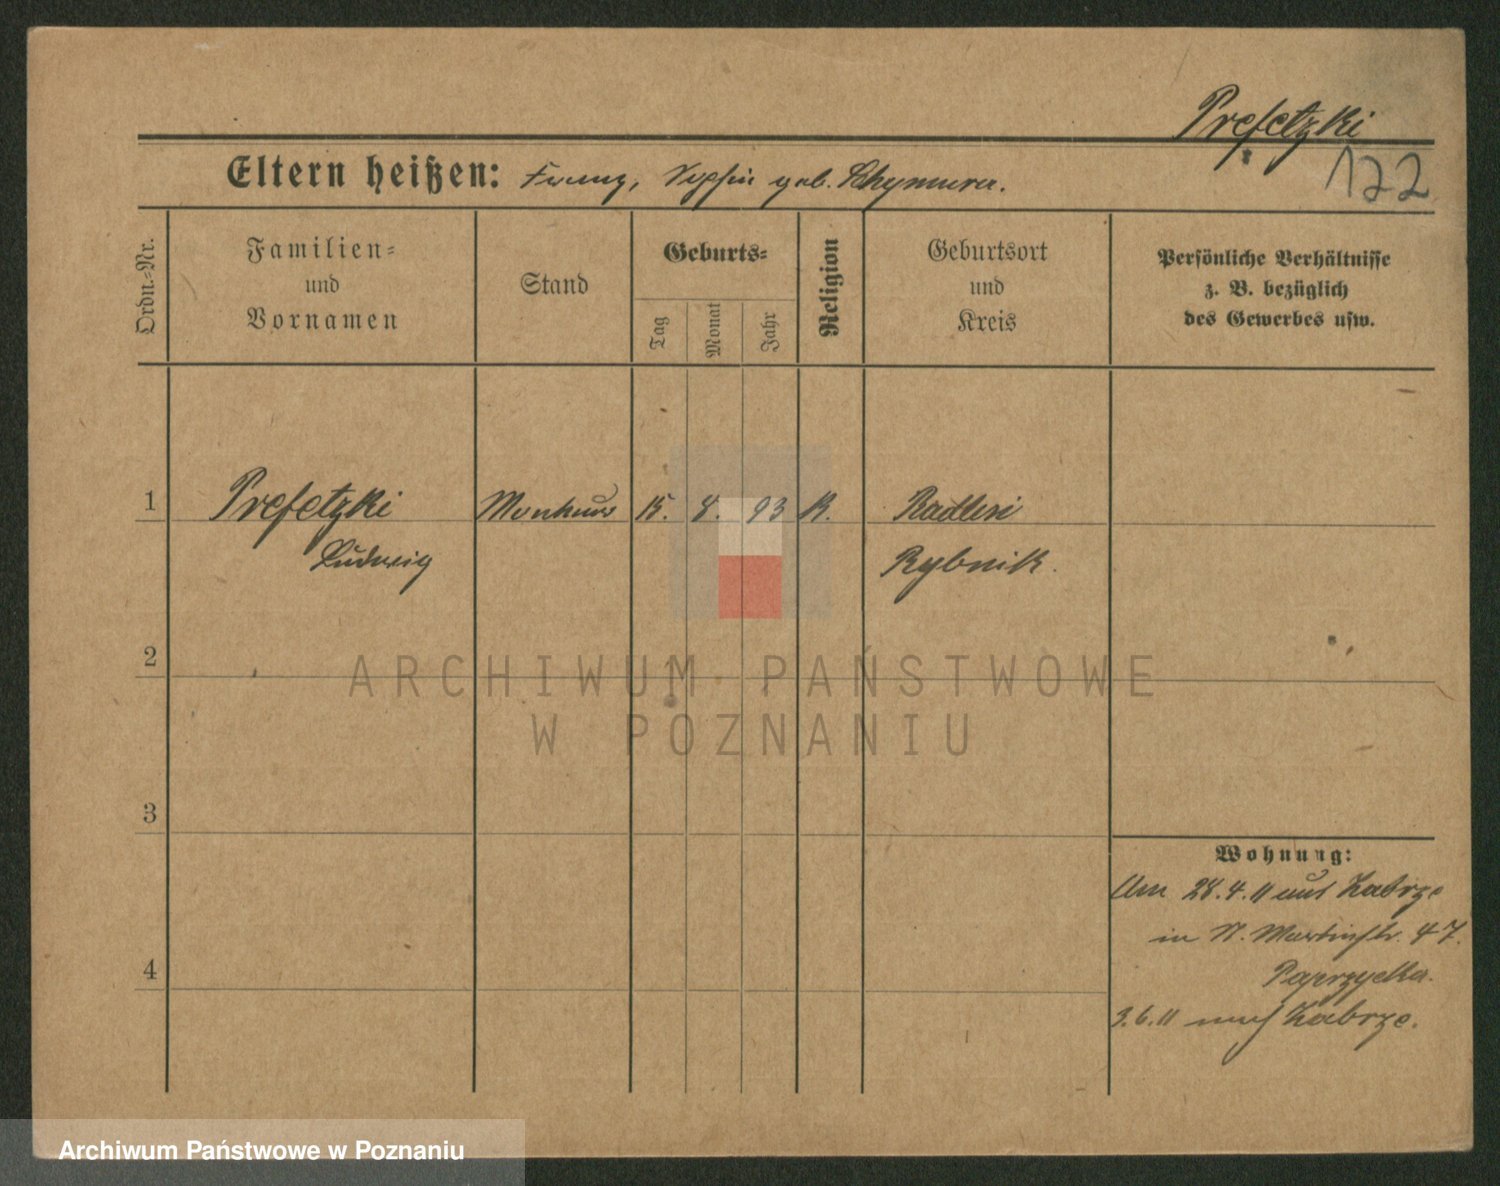 Prefetzki
122
Eltern heißen: Franz, Sophie geb. Chymura.
Ordn.-Nr.
Familien-
und
Vornamen
Stand
Geburts-
Tag
Monat
Jahr
Religion
Geburtsort
und
Kreis
Persönliche Verhältnisse
z. B. bezüglich
des Gewerbes usw.
1
Prefetzki
Ludwig
15. 8. 93
K.
Radlin
Rybnik.
2
3
4
Wohnung:
Am 28.4.11 aus Zabrze
in St. Martinstr. 47.
Paprzycka.
3.6.11 nach Zabrze.
ARCHIWUM PAŃSTWOWE
W POZNANIU
Archiwum Państwowe w Poznaniu